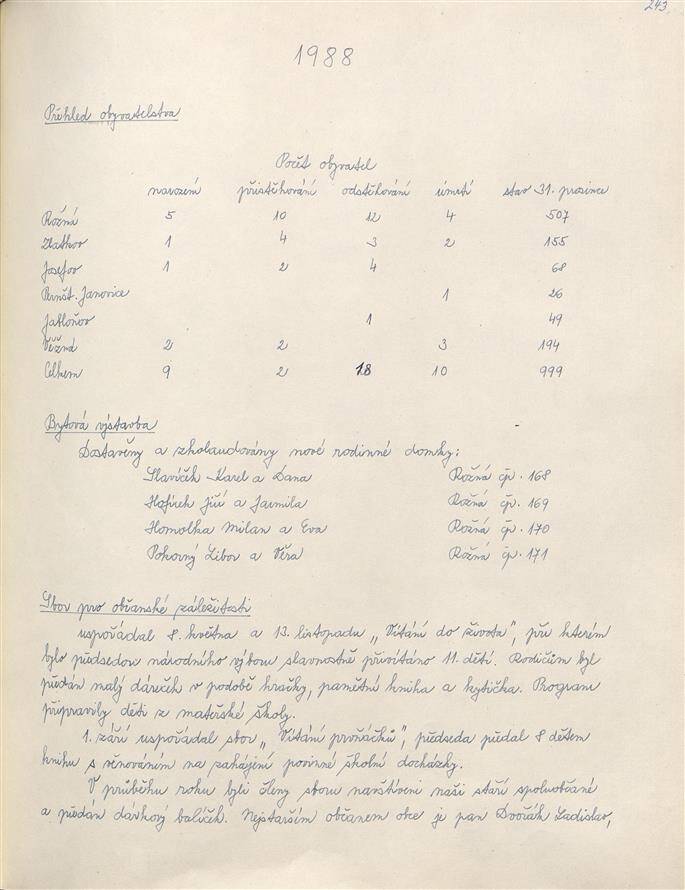 243.
1988
Přehled obyvatelstva
Počet obyvatel
narození přistěhování odstěhování úmrtí stav 31. prosince
Rožná 5 10 12 4 507
Zlatkov 1 4 3 2 155
Josefov 1 2 4 68
Pernšt. Janovice 1 26
Jabloňov 1 49
Věžná 2 2 3 194
Celkem 9 2 18 10 999
Bytová výstavba
Dostavěny a zkolaudovány nové rodinné domky:
Slavíček Karel a Dana Rožná čp. 168
Hofírek Jiří a Jarmila Rožná čp. 169
Homolka Milan a Eva Rožná čp. 170
Pokorný Libor a Věra Rožná čp. 171
Sbor pro občanské záležitosti
uspořádal 8. května a 13. listopadu „Vítání do života", při kterém
bylo předsedou národního výboru slavnostně přivítáno 11 dětí. Rodičům byl
předán malý dáreček v podobě hračky, pamětní kniha a kytička. Program
připravily děti z mateřské školy.
1. září uspořádal sbor „Vítání prvňáčků", předseda předal 8 dětem
knihu s věnováním na zahájení povinné školní docházky.
V průběhu roku byli členy sboru navštíveni naši staří spoluobčané
a předán dárkový balíček. Nejstarším občanem obce je pan Dvořák Ladislav,